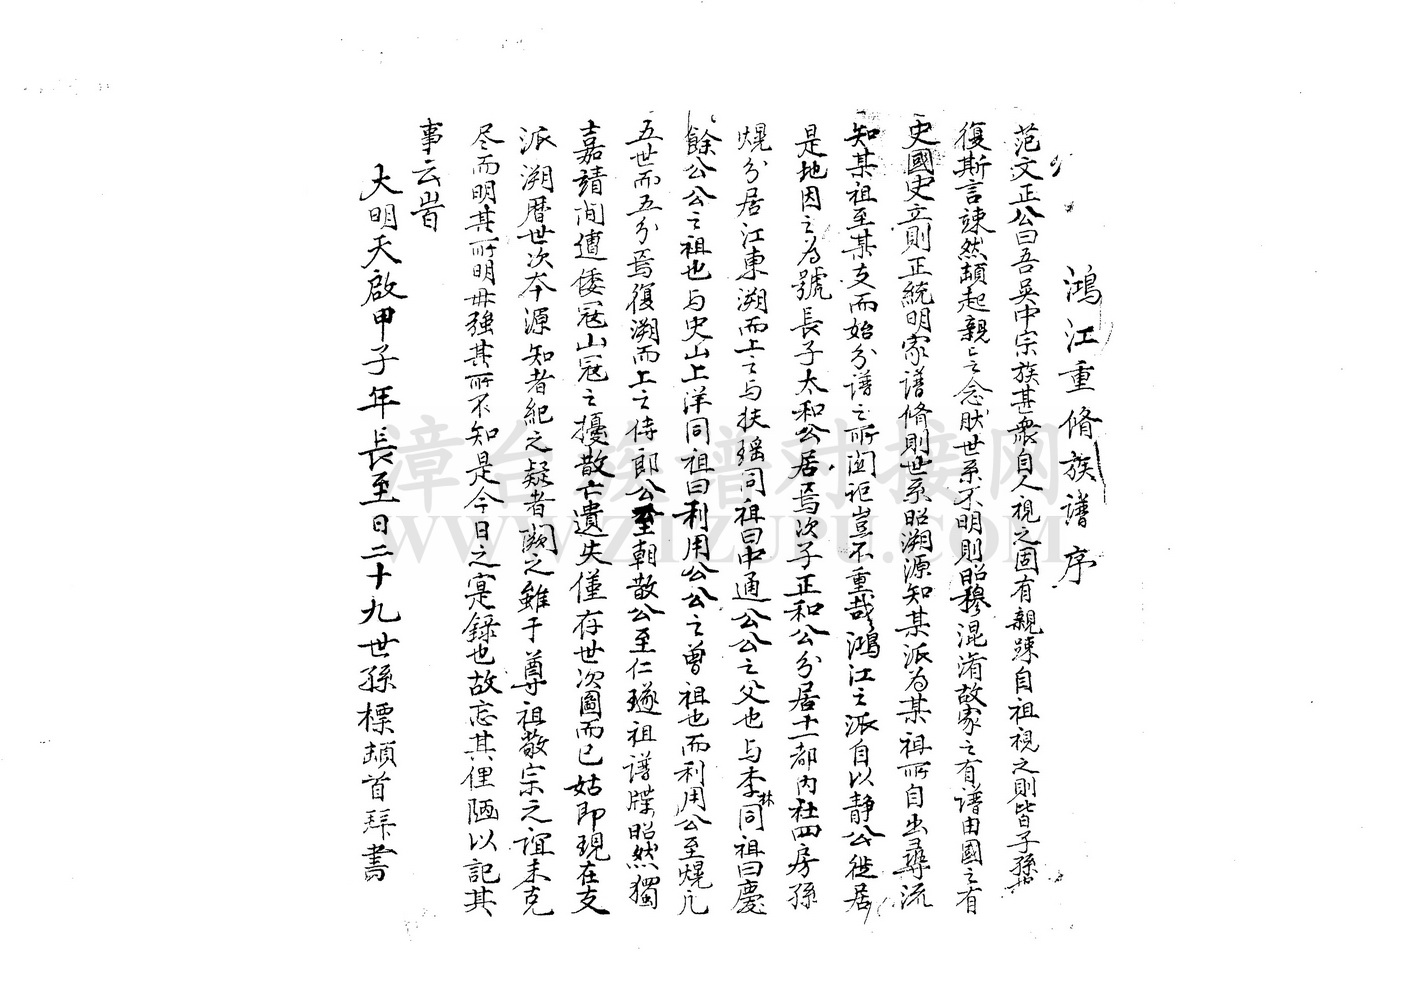 鴻江重脩族譜序
范文正公曰吾吳中宗族甚衆自人視之固有親踈自祖視之則皆子孫也
復斯言竦然頡起親亡之念肰世系不明則昭穆混淆故家之有譜由國之有
史國史立則正統明家譜脩則世系昭溯源知某派為某祖所自出尋流
知某祖至某支而始分譜之所関詎豈不重哉鴻江之派自以靜公徙居
是地因之為號長子太和公居焉次子正和公分居十一都內社四房孫
熀分居江東溯而上之与扶瑶同祖曰中通公公之父也与李林同祖曰慶
餘公公之祖也与史山上洋同祖曰利用公公之曾祖也而利用公至熀凢
五世而五分焉復溯而上之侍郎公至朝散公至仁璲祖譜牒昭然獨
嘉靖间遭倭冦山冦之擾散亡遺失僅存世次圖而已姑即現在支
派溯曆世次本源知者紀之疑者闕之雖于尊祖敬宗之誼未克
尽而明其所明毋強其所不知是今日之寔錄也故忘其俚陋以記其
事云旹
大明天啟甲子年長至日二十九世孫標頡首拜書
漳台族谱对接网
WWW.ZIZUPU.COM